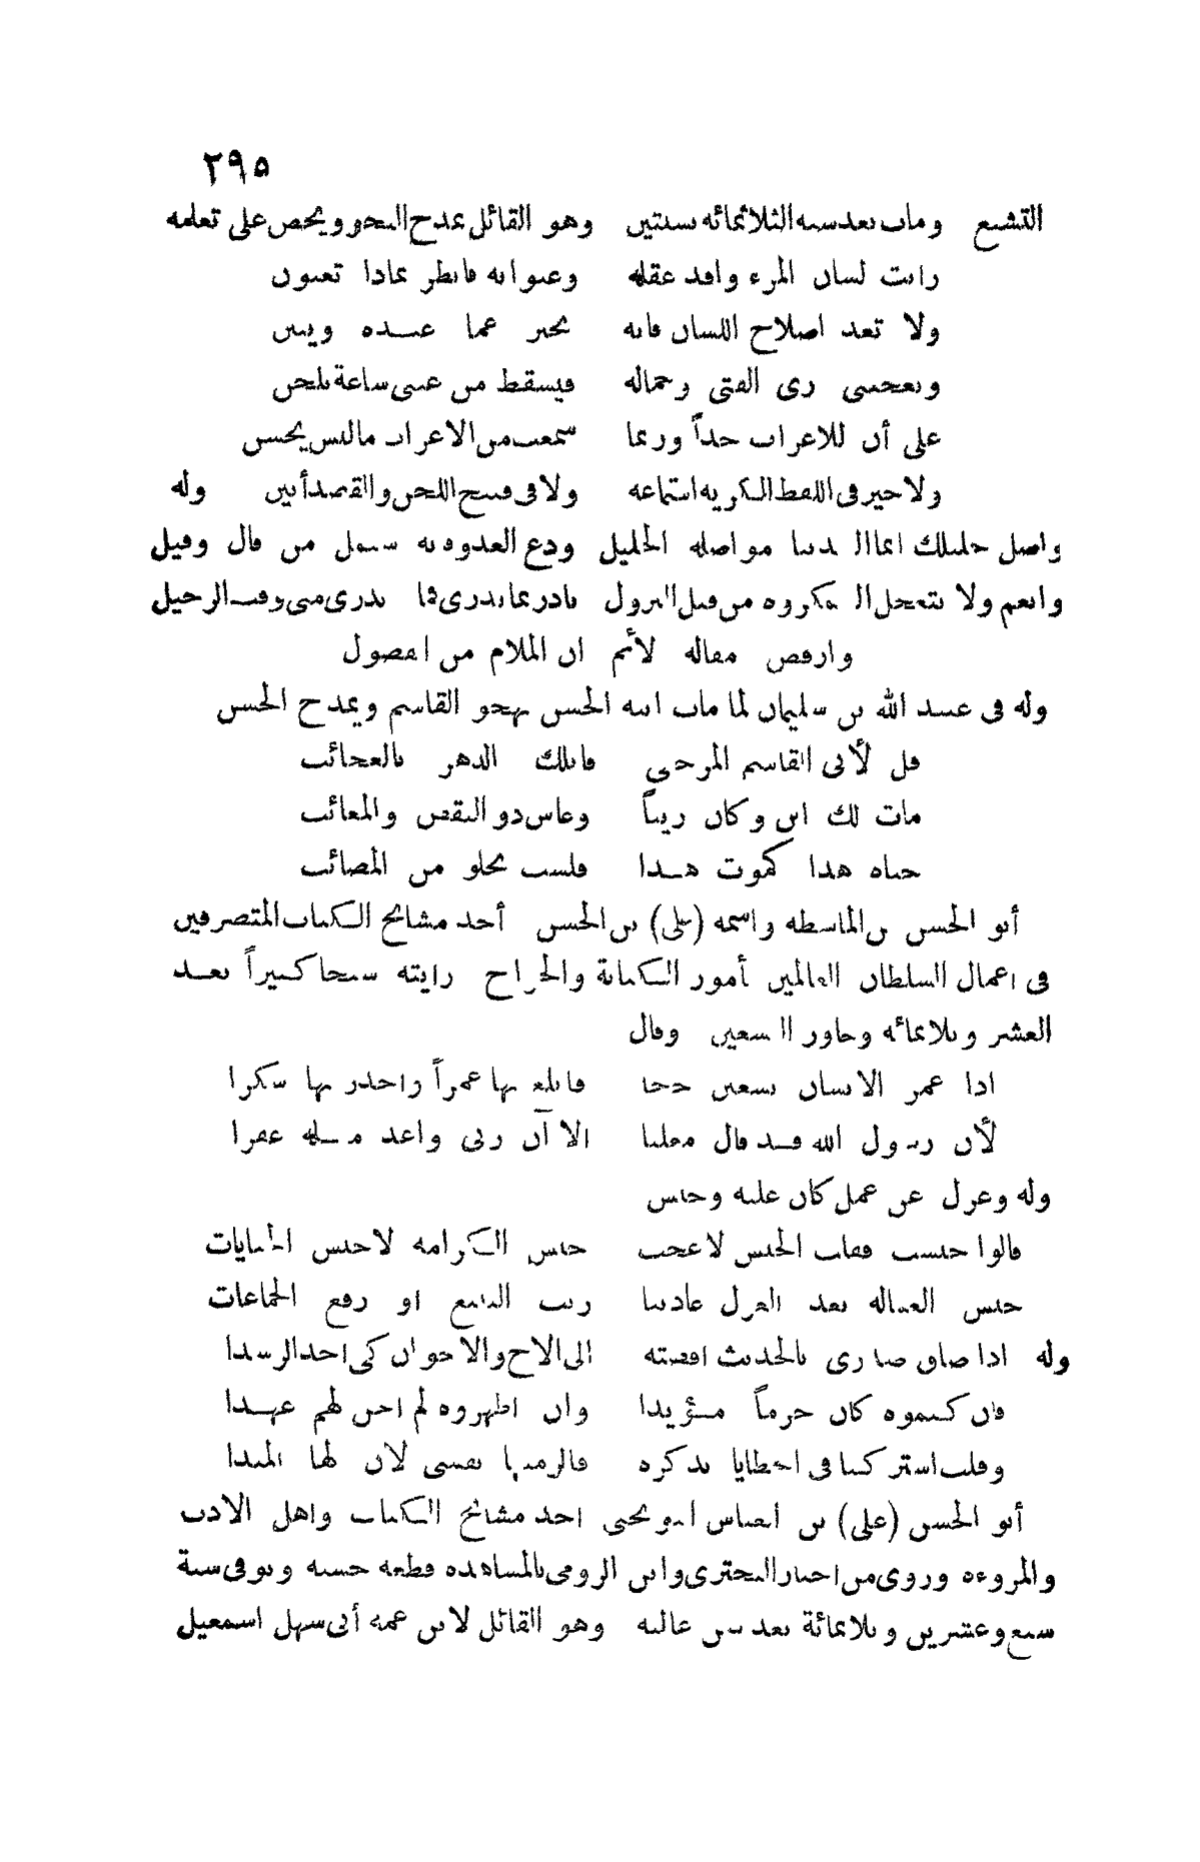 ٢٩٥
التشيع ومات بعد سنة الثلاثمائة بسنتين وهو القائل يمدح النحو ويحض على تعلمه
رايت لسان المرء وافد عقله وعنوانه فانظر بماذا تعنون
ولا تعد اصلاح اللسان فانه يخبر عما عنده ويبين
ويعجبنى زى الفتى وجماله فيسقط من عينى ساعة يلحن
على أن للاعراب حداً وربما سمعت من الاعراب ما ليس يحسن
ولا خير فى اللفظ الكريه استماعه ولا فى قبيح اللحن والقصد أبين وله
واصل خليلك انما الدنيا مواصلة الخليل ودع العدو فيه من قال وقيل
وانعم ولا تتعجل المكروه من قبل النزول بادر بما تدرى فما تدرى متى وقت الرحيل
وارفض مقالة لأئم ان الملام من الفضول
وله فى عبيد الله بن سليمان لما مات ابنه الحسن يهجو القاسم ويمدح الحسن
قل لأبى القاسم المرجى قابلك الدهر بالعجائب
مات لك ابن وكان زيناً وعاش ذو النقص والمعائب
حياة هذا كموت هذا فلست تخلو من المصائب
أبو الحسن بن الماشطة واسمه (على) بن الحسن أحد مشائخ الكتاب المتصرفين
فى اعمال السلطان العالمين بأمور الكتابة والخراج رايته شيخا كبيراً بعد
العشر وثلاثمائة وجاوز التسعين وقال
اذا عمر الانسان تسعين حجة فابلغ بها عمراً واجدر بها شكرا
لأن رسول الله قد قال معلنا الا ان ربى واعد مثله غفرا
وله وعزل عن عمل كان عليه وحبس
قالوا حبست فقلت الحبس لا عجب حبس الكرامة لا حبس الجنايات
حبس العمالة بعد العزل عادتنا ريث التتبع او رفع الجماعات
وله اذا ضاق صدرى بالحديث افضته الى الاخ والاخوان كى اجد الرشدا
فان كتموه كان حزماً مؤيدا وان اظهروه لم اخن لهم عهدا
وقلت اشتركنا فى الخطايا بذكره فالزمتها نفسى لان لها المبدا
أبو الحسن (على) بن العباس النوبختى احد مشائخ الكتاب واهل الادب
والمروءة وروى من اخبار البحترى وابن الرومى بالمشاهدة قطعة حسنة وتوفى سنة
سبع وعشرين وثلاثمائة بعد سن عالية وهو القائل لابن عمه أبى سهل اسمعيل